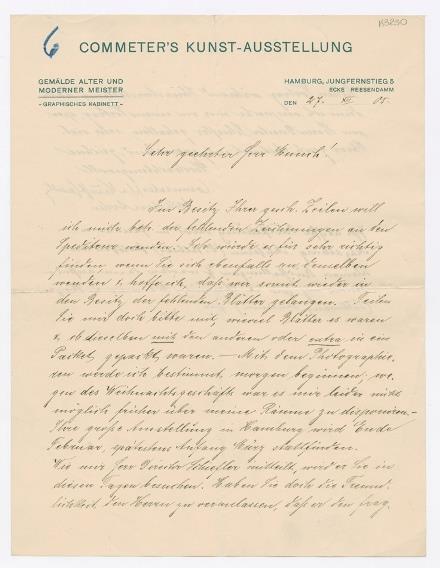 6
K3230
COMMETER'S KUNST-AUSSTELLUNG
GEMÄLDE ALTER UND
MODERNER MEISTER
- GRAPHISCHES KABINETT -
HAMBURG, JUNGFERNSTIEG 5
ECKE REESENDAMM
DEN 27. XII 05.
Sehr geehrter Herr Munch!
Im Besitz Ihrer gesch. Zeilen will
ich mich betr. der fehlenden Zeichnungen an den
Spediteur wenden. Ich würde es für sehr richtig
finden, wenn Sie sich ebenfalls an denselben
wenden & hoffe ich, dass wir somit wieder in
den Besitz der fehlenden Blätter gelangen. Teilen
Sie mir doch bitte mit, wieviel Blätter es waren
& ob dieselben mit den anderen oder extra in ein
Packet gepackt waren. — Mit dem Photographie-
ren werde ich bestimmt morgen beginnen; we-
gen des Weihnachtsgeschäfts war es mir leider nicht
möglich früher über meine Räume zu disponieren. —
Ihre große Ausstellung in Hamburg wird Ende
Februar, spätestens Anfang März stattfinden.
Wie mir Herr Direktor Schiefler mitteilt, wird er Sie in
diesen Tagen besuchen. Haben Sie doch die Freund-
lichkeit, den Herrn zu veranlassen, daß er den frag-